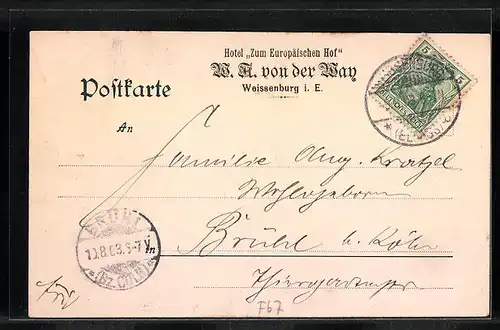 Hotel „Zum Europäischen Hof"
W. A. von der Way
Weissenburg i. E.
Postkarte
An
Familie Aug. Kratzel
Wohlgeboren
in Brühl b. Köln
Thiergartenstr.
BRÜHL
10.8.03. 6-7 V.
*(BZ. CÖLN)*
5 5
(ELSASS)
F67